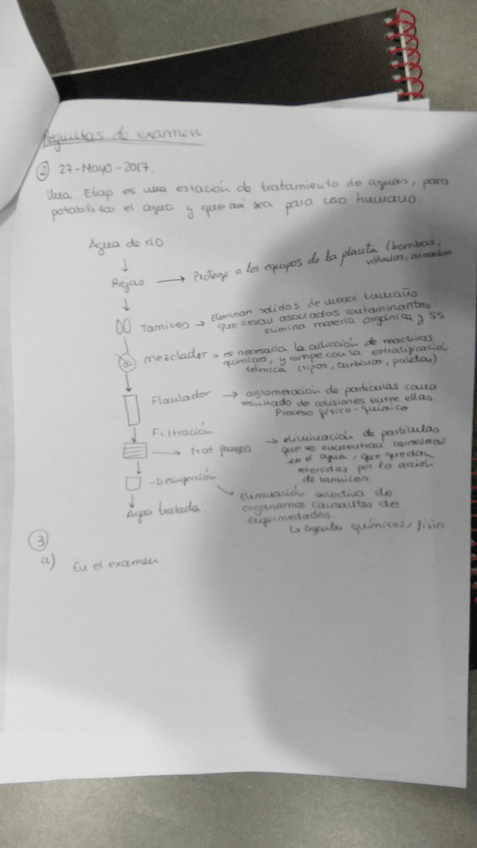 Preguntas de examen
② 27-Mayo-2017.
Una Etap es una estación de tratamiento de aguas, para
potabilizar el agua y que así sea para uso humano.
Agua de río
Rejas → Protege a los equipos de la planta (bombas,
válvulas,
Tamices → Eliminan sólidos de menor tamaño
que llevan asociados contaminantes
elimina materia orgánica y SS
mezclador → es necesaria la adicción de reactivos
químicos, y rompe con la estratificación
térmica. (tipos, turbinas, paletas).
Floculador → aglomeración de partículas como
resultado de colisiones entre ellas
Proceso físico-químico
Filtración
→ eliminación de partículas
que se encuentran
en el agua, que quedan
retenidas por la acción
de tamices.
- Desinfección
eliminación selectiva de
organismos causantes de
enfermedades.
↳ agentes químicos/
Agua tratada
③
a) En el examen